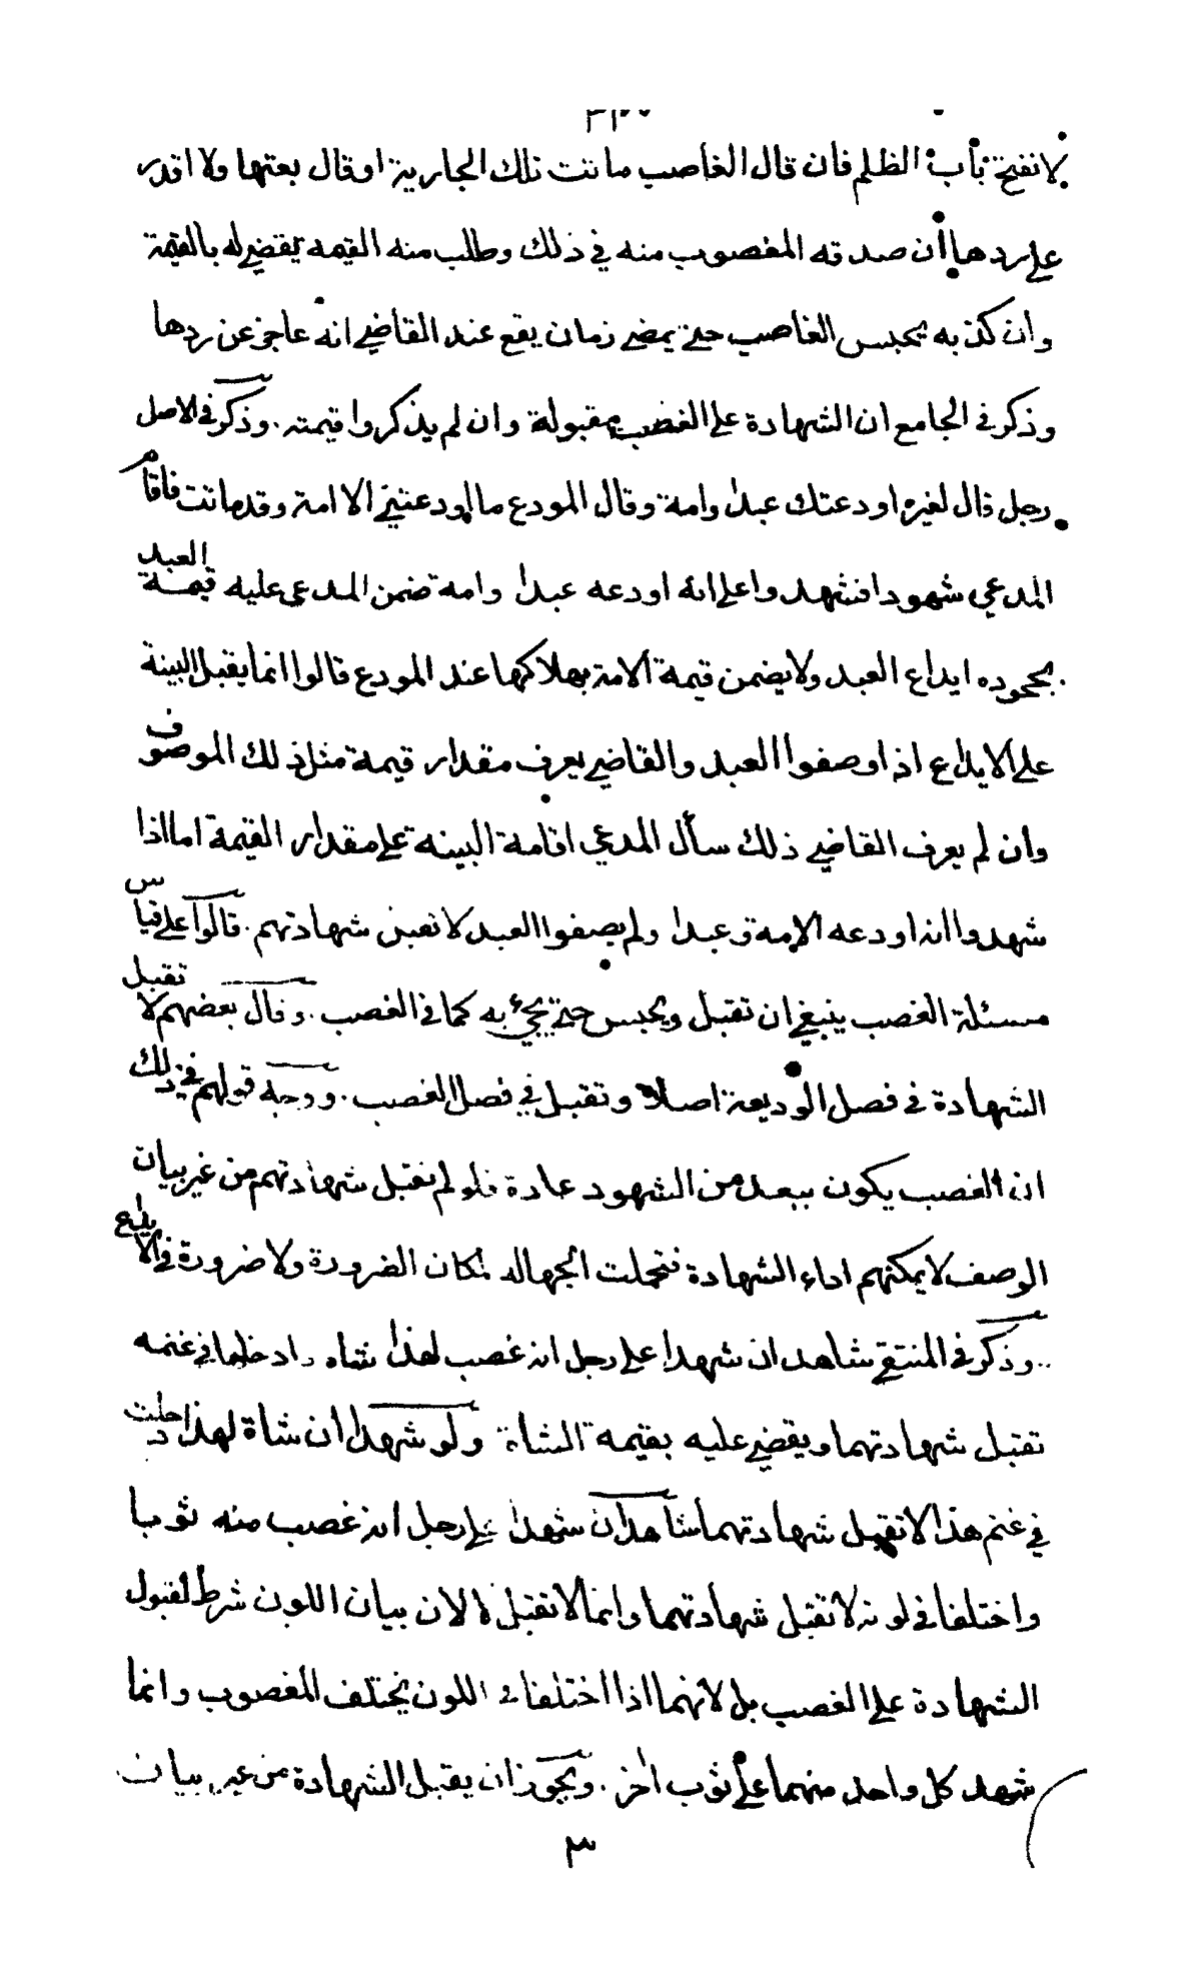 لانفتح باب الظلم فان قال الغاصب ماتت تلك الجارية او قال بعتها ولا اقدر
على ردها ان صدقه المغصوب منه في ذلك وطلب منه القيمه يقضي له بالقيمة
وان كذبه يحبس الغاصب حتى يمضي زمان يقع عند القاضي انه عاجز عن ردها
وذكر في الجامع ان الشهادة على الغصب مقبولة وان لم يذكروا قيمته . وذكر في الاصل
رجل قال لغيره اودعتك عبدا وامة وقال المودع ما اودعتني الا امة وقد ماتت فاقام
المدعي شهودا فشهدوا على انه اودعه عبدا وامة ضمن المدعى عليه قيمة العبد
بجحوده ايداع العبد ولا يضمن قيمة الامة بهلاكها عند المودع قالوا انما يقبل البينة
على الايداع اذا وصفوا العبد والقاضي يعرف مقدار قيمة مثل ذلك الموصوف
وان لم يعرف القاضي ذلك سأل المدعي اقامة البينة على مقدار القيمة اما اذا
شهدوا انه اودعه الامة وعبدا ولم يصفوا العبد لا تقبل شهادتهم . قالوا على قياس
مسئلة الغصب ينبغي ان تقبل ويحبس حتى يجيء به كما في الغصب . وقال بعضهم لا تقبل
الشهادة في فصل الوديعة اصلا وتقبل في فصل الغصب . ووجه قولهم في ذلك
ان الغصب يكون ببعد من الشهود عادة فلو لم تقبل شهادتهم من غير بيان
الوصف لا يمكنهم اداء الشهادة فتحملت الجهاله لمكان الضرورة ولا ضرورة في الايداع
.. وذكر في المنتقى شاهدان شهدا على رجل انه غصب لهذا شاه وادخلها في غنمه
تقبل شهادتهما ويقضي عليه بقيمة الشاة ولو شهدا ان شاة لهذا دخلت
في غنم هذا لا تقبل شهادتهما شاهدان شهدا على رجل انه غصب منه ثوبا
واختلفا في لونه لا تقبل شهادتهما وانما لا تقبل لا لان بيان اللون شرط لقبول
الشهادة على الغصب بل لانهما اذا اختلفا في اللون يختلف المغصوب وانما
شهد كل واحد منهما على ثوب اخر . ويجوز ان يقبل الشهادة من غير بيان
٣